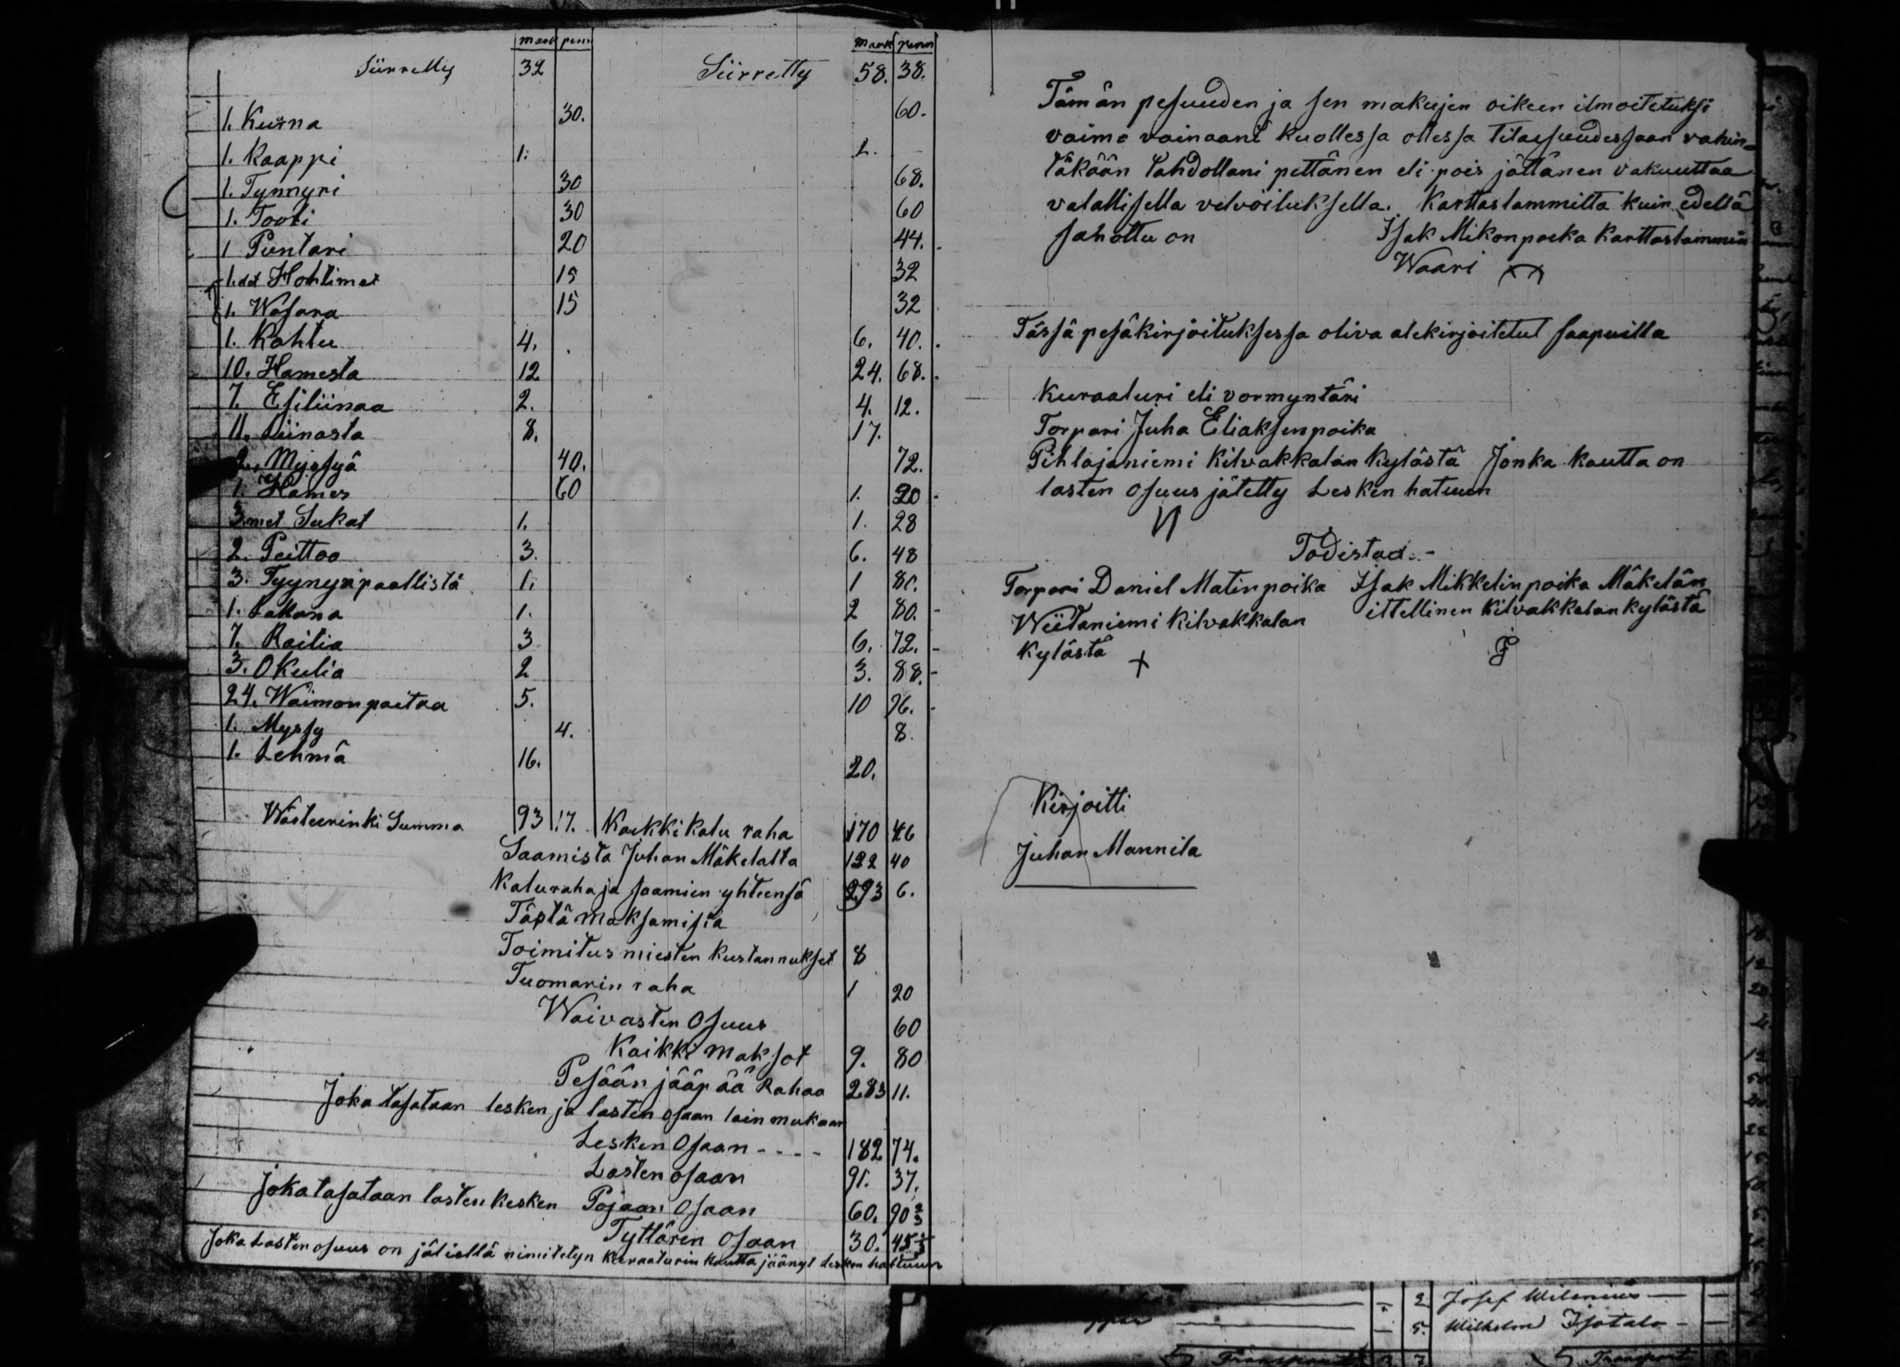 mark penn mark penn
Siirretty 32 Siirretty 58. 38.
1. Kurna 30. 60.
1. Kaappi 1. 2.
1. Tynnyri 30 68.
1. Tooli 30 60
1 Puntari 20 44.
1. Hohtimet 15 32
1. Wasara 15 32
1. Kohtu 4. 6. 40.
10. Hamesta 12 24. 68.
7. Esiliinaa 2. 4. 12.
11. Liinasta 8. 17.
Myssyä 40. 72.
1. Hames 60 1. 20
3met Sukat 1. 1. 28
2. Peittoo 3. 6. 48
3. Tyynynpaallistä 1. 1 80.
1. Lakana 1. 2 80.
7. Raitia 3 6. 72.
3. Okulia 2 3. 88.
24. Waimonpaitaa 5. 10 96.
1. Myssy 4. 8.
1. Lehmä 16. 20.
Wästeerinki Summa 93 17. Kaikki kalu raha 170 46
Saamista Juhan Mäkelältä 122 40
Kaluraha ja saamien yhteensä 293 6.
Tästä maksamisia
Toimitus miesten kustannukset 8
Tuomarin raha 1 20
Waivasten Osuus 60
Kaikki maksot 9. 80
Pesään jääpää Rahaa 283 11.
Joka tasataan lesken ja lasten osaan lain mukaan
Lesken Osaan - - - - 182 74.
Lasten osaan 91. 37.
Joka tasataan lasten kesken Pojaan Osaan 60. 90 2/3
Tyttären Osaan 30. 45 1/3
Joka Lasten osuus on jälistä nimitetyn kuraaturin kautta jäänyt Lesken hattuun
Tämän pesuuden ja sen makujen oikeen ilmoitetuksi
vaimo vainaani kuollessa ollessa tilaisuudessaan vahin-
täkään tahdollani pettänen eli pois jättänen vakuuttaa
valallisella velvoituksella. Karttaslammilla kuin edellä
sanottu on Isak Mikonpoika Karttaslammin
Waari XX
Tässä pesäkirjoituksessa oliva alekirjoitetut saapuilla
Kuraaturi eli vormyntäri
Torpari Juha Eliaksenpoika
Pihlajaniemi Kilvakkalan Kylästä Jonka kautta on
lasten osuus jätetty Lesken hatuun
Todistaa. -
Torpari Daniel Matinpoika Isak Mikkelinpoika Mäkelän
Wiitaniemi Kilvakkalan ittellinen Kilvakkalan kylästä
Kylästä +
Kirjoitti
Juhan Mannila
2 Josef Wilenius
5. Wilhelm Isotalo
Transport Transport